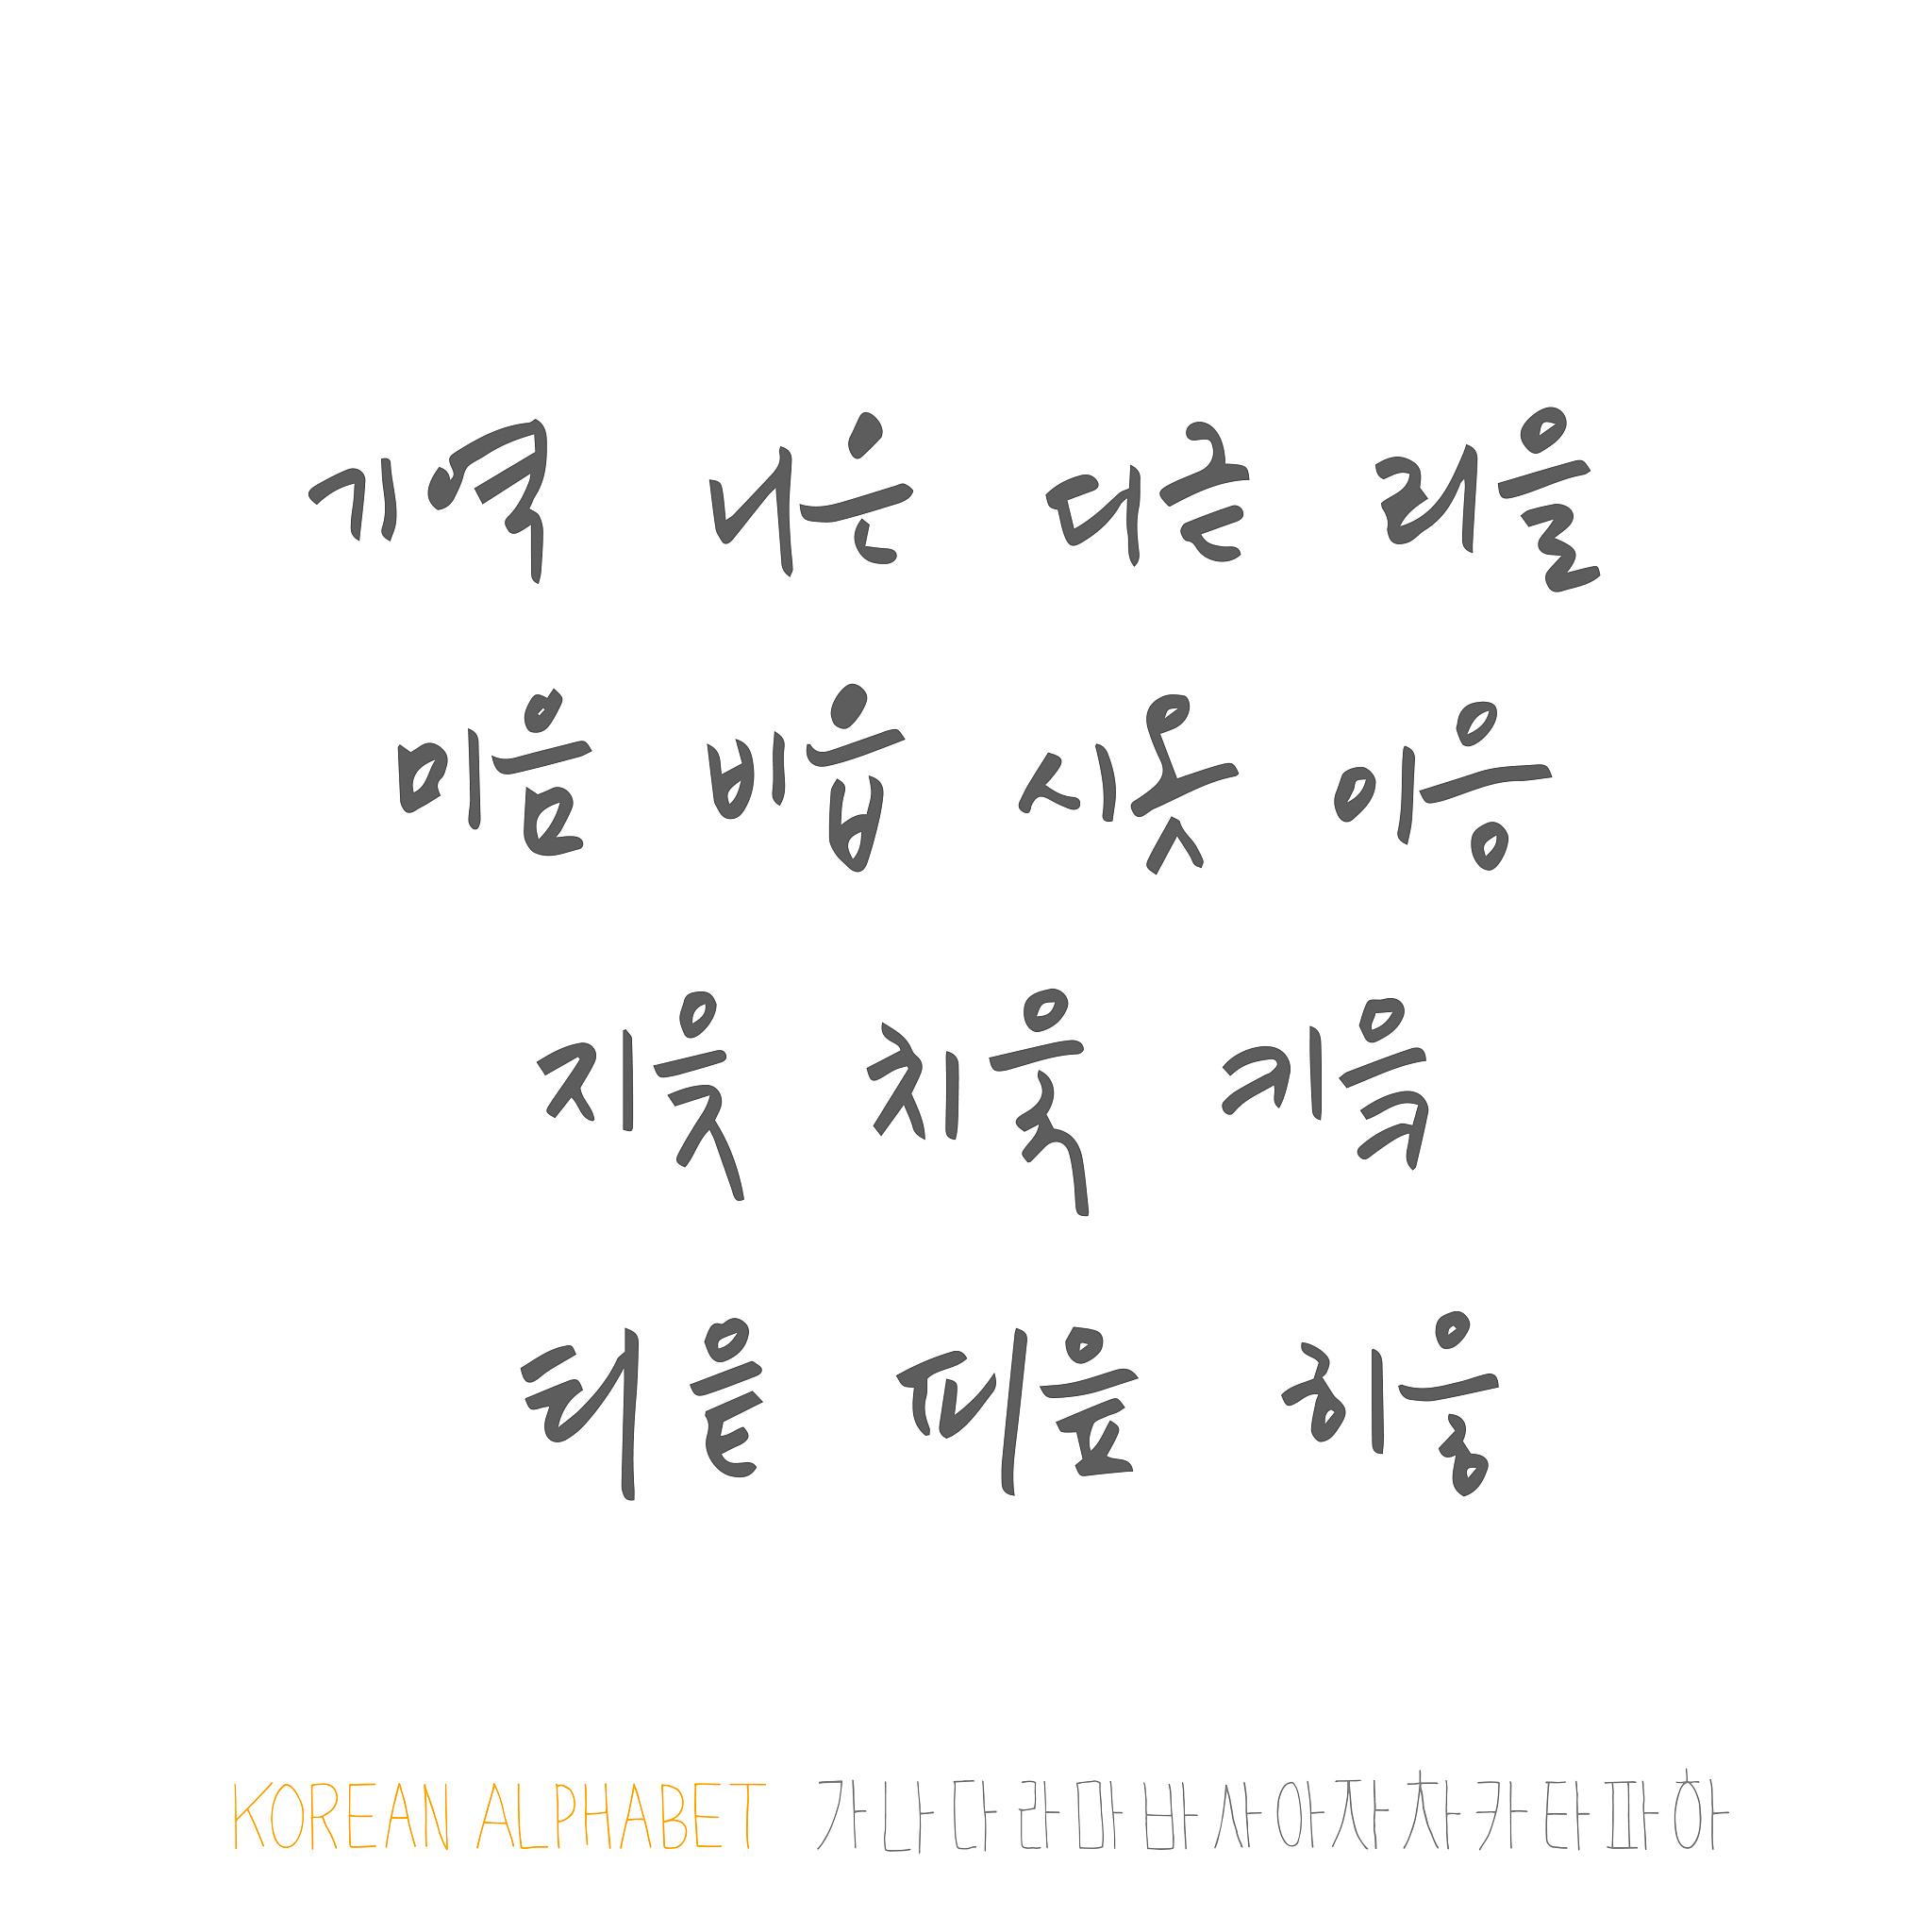 기역 니은 디귿 리을
미음 비읍 시옷 이응
지읒 치읓 키읔
티읕 피읖 히읗
KOREAN ALPHABET 가나다라마바사아자차카타파하